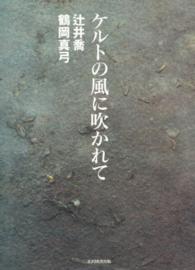 ケルトの風に吹かれて
辻井喬
鶴岡真弓